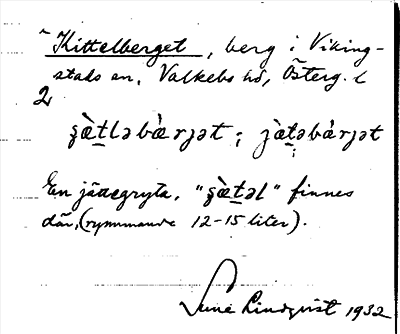 Kittelberget, berg i Viking-
stads sn, Valkebo hd, Österg. l
2
ʂæ̀tləbàrjət; ʂæ̀təbàrjət
En jättegryta, "ʂæ̀təl" finnes
där, (rymmande 12-15 liter).
Sune Lindqvist 1932